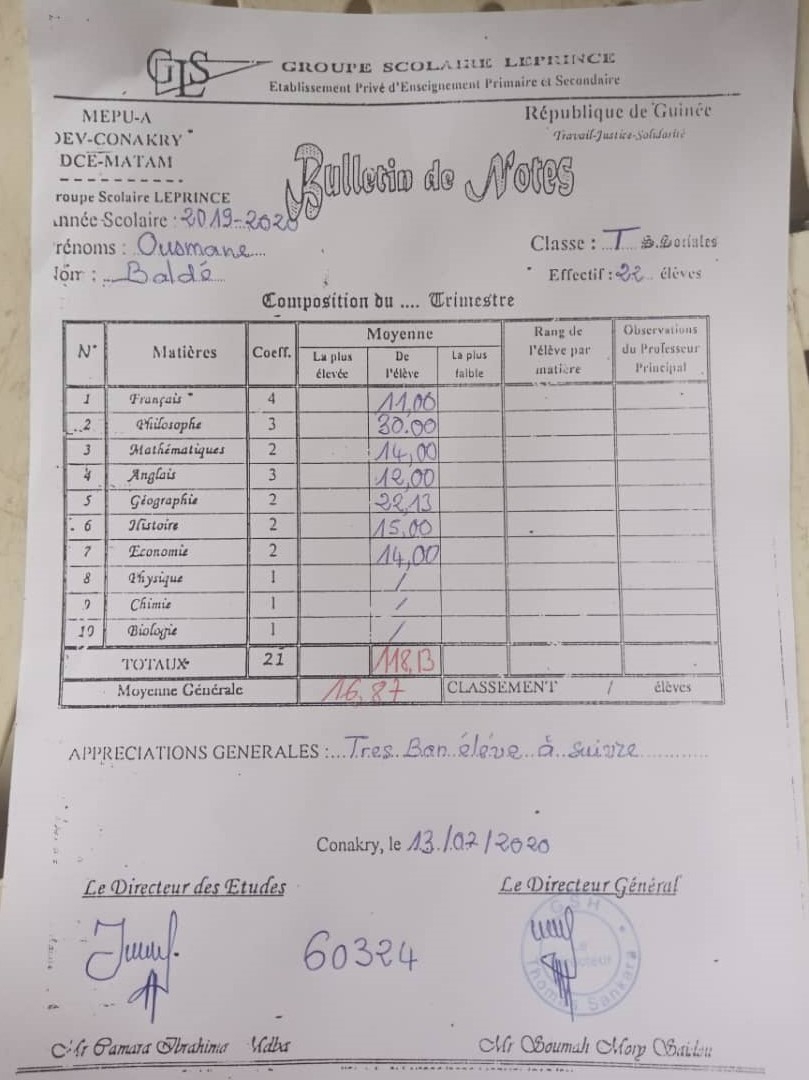 GLS
GROUPE SCOLAIRE LEPRINCE
Etablissement Privé d'Enseignement Primaire et Secondaire
MEPU-A République de Guinée
DEV-CONAKRY Travail-Justice-Solidarité
DCE-MATAM
Bulletin de Notes
roupe Scolaire LEPRINCE
nnée Scolaire : 2019-2020
rénoms : Ousmane Classe : T S.Sociales
Nom : Baldé Effectif : 22 élèves
Composition du .... Trimestre
N° Matières Coeff. Moyenne Rang de l'élève par matière Observations du Professeur Principal
La plus élevée De l'élève La plus faible
1 Français 4 11,00
2 Philosophe 3 30.00
3 Mathématiques 2 14,00
4 Anglais 3 12,00
5 Géographie 2 22,13
6 Histoire 2 15,00
7 Economie 2 14,00
8 Physique 1 /
9 Chimie 1 /
10 Biologie 1 /
TOTAUX 21 118,13
Moyenne Générale 16,87 CLASSEMENT / élèves
APPRECIATIONS GENERALES :... Tres Bon élève à suivre
Conakry, le 13/07/2020
Le Directeur des Etudes Le Directeur Général
60324
GSH
Thomas Sankara
Mr Camara Ibrahima Mr Soumah Mory Saidou